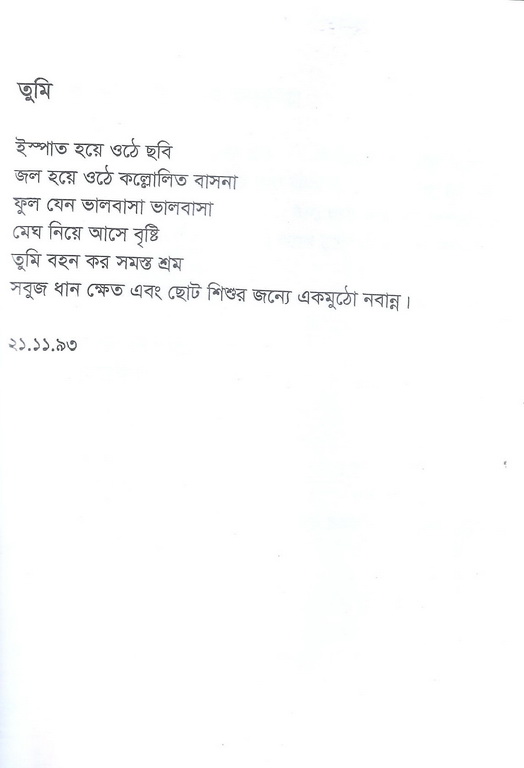 তুমি
ইস্পাত হয়ে ওঠে ছবি
জল হয়ে ওঠে কল্লোলিত বাসনা
ফুল যেন ভালবাসা ভালবাসা
মেঘ নিয়ে আসে বৃষ্টি
তুমি বহন কর সমস্ত শ্রম
সবুজ ধান ক্ষেত এবং ছোট শিশুর জন্যে একমুঠো নবান্ন।
২১.১১.৯৩